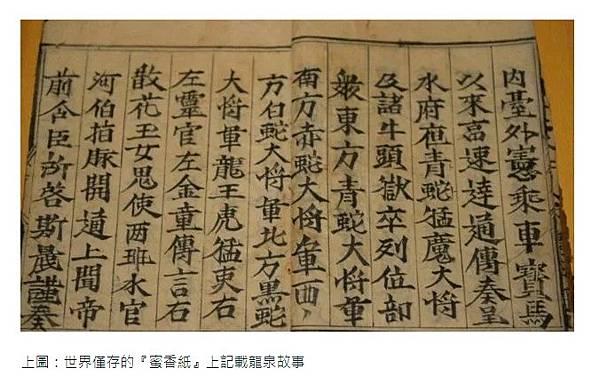 内臺外憲乘車寶馬
以來速達通傳奏呈
水府青蛇猛魔大将
及諸牛頭獄卒列位部
衆東方青蛇大将軍
南方赤蛇大将軍西
方白蛇大将軍北方黑蛇
大将軍龍王虎猛吏右
左靈官左金童傳言右
散花玉女鬼使两班水官
河伯拍開道上聞帝
前臣所啓斯晨謹奏
上圖：世界僅存的『蜜香紙』上記載龍泉故事